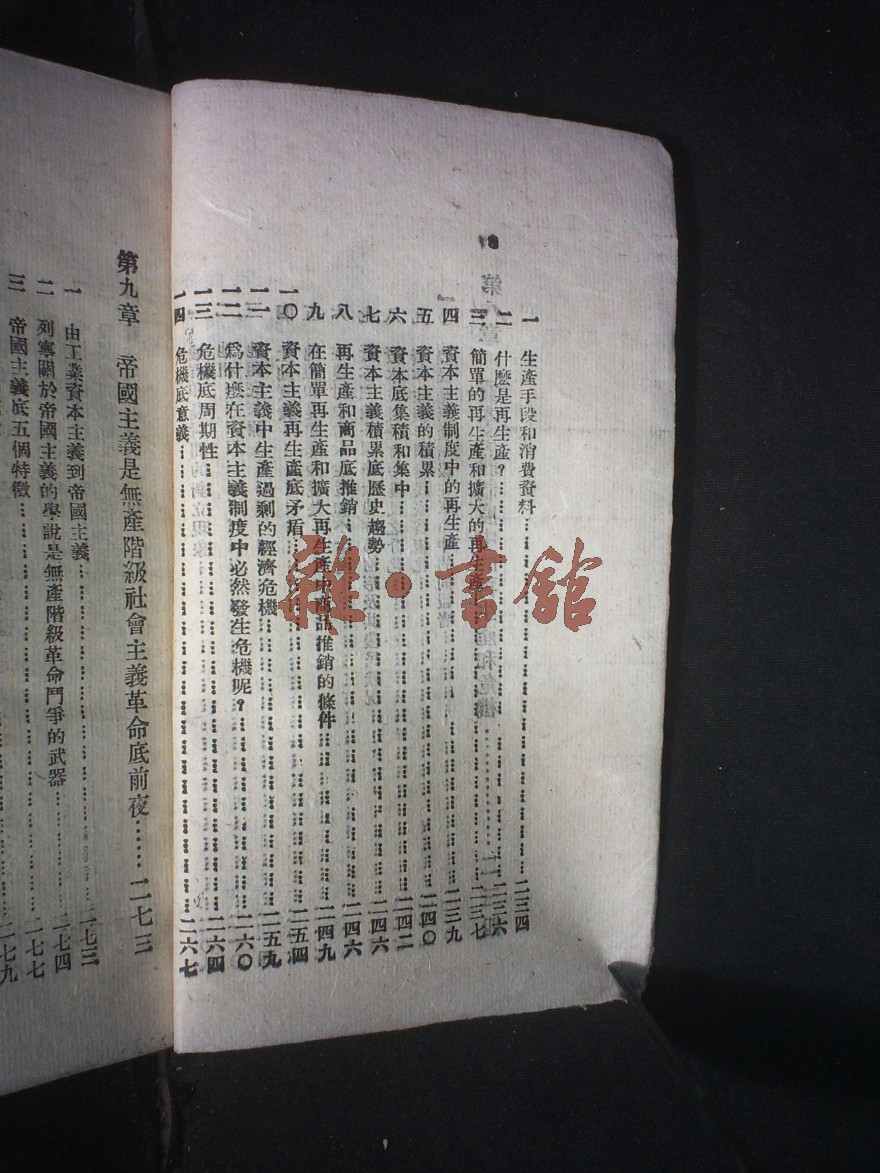 一 生產手段和消費資料……二三四
二 什麽是再生產？……二三六
三 簡單的再生產和擴大的再生產……二三七
四 資本主義制度中的再生產……二三九
五 資本主義的積累……二四〇
六 資本底集積和集中……二四二
七 資本主義積累底歷史趨勢……二四六
八 再生產和商品底推銷……二四六
九 在簡單再生產和擴大再生產中商品推銷的條件……二四九
一〇 資本主義再生產底矛盾……二五四
一一 資本主義中生產過剩的經濟危機……二五九
一二 爲什麽在資本主義制度中必然發生危機呢？……二六〇
一三 危機底周期性……二六四
一四 危機底意義……二六七
第九章 帝國主義是無產階級社會主義革命底前夜……二七三
一 由工業資本主義到帝國主義……二七三
二 列寧關於帝國主義的學說是無產階級革命鬥爭的武器……二七四
三 帝國主義底五個特徵……二七七
二七九
雜·書館